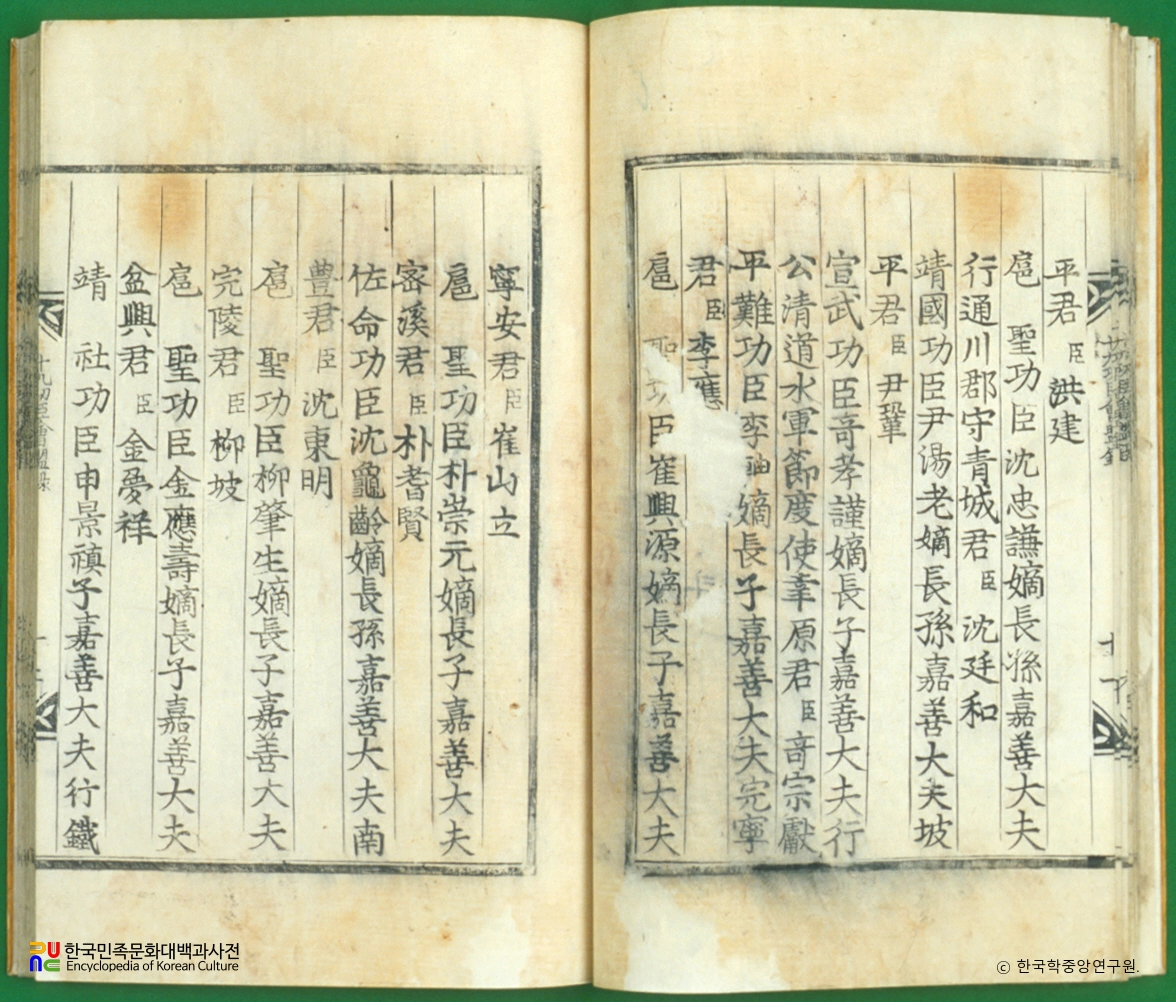 平君 臣 洪建
扈 聖功臣沈忠謙嫡長孫嘉善大夫
行通川郡守青城君 臣 沈廷和
靖國功臣尹湯老嫡長孫嘉善大夫坡
平君 臣 尹鞏
宣武功臣奇孝謹嫡長子嘉善大夫行
公清道水軍節度使幸原君 臣 奇宗獻
平難功臣李 嫡長子嘉善大夫完寧
君 臣 李應
扈 聖功臣崔興源嫡長子嘉善大夫
寧安君 臣 崔山立
扈 聖功臣朴崇元嫡長子嘉善大夫
密溪君 臣 朴耆賢
佐命功臣沈龜齡嫡長孫嘉善大夫南
豊君 臣 沈東明
扈 聖功臣柳肇生嫡長子嘉善大夫
完陵君 臣 柳坡
扈 聖功臣金應壽嫡長子嘉善大夫
盆興君 臣 金愛祥
靖 社功臣申景禛子嘉善大夫行鐵
한국민족문화대백과사전
Encyclopedia of Korean Culture
© 한국학중앙연구원.